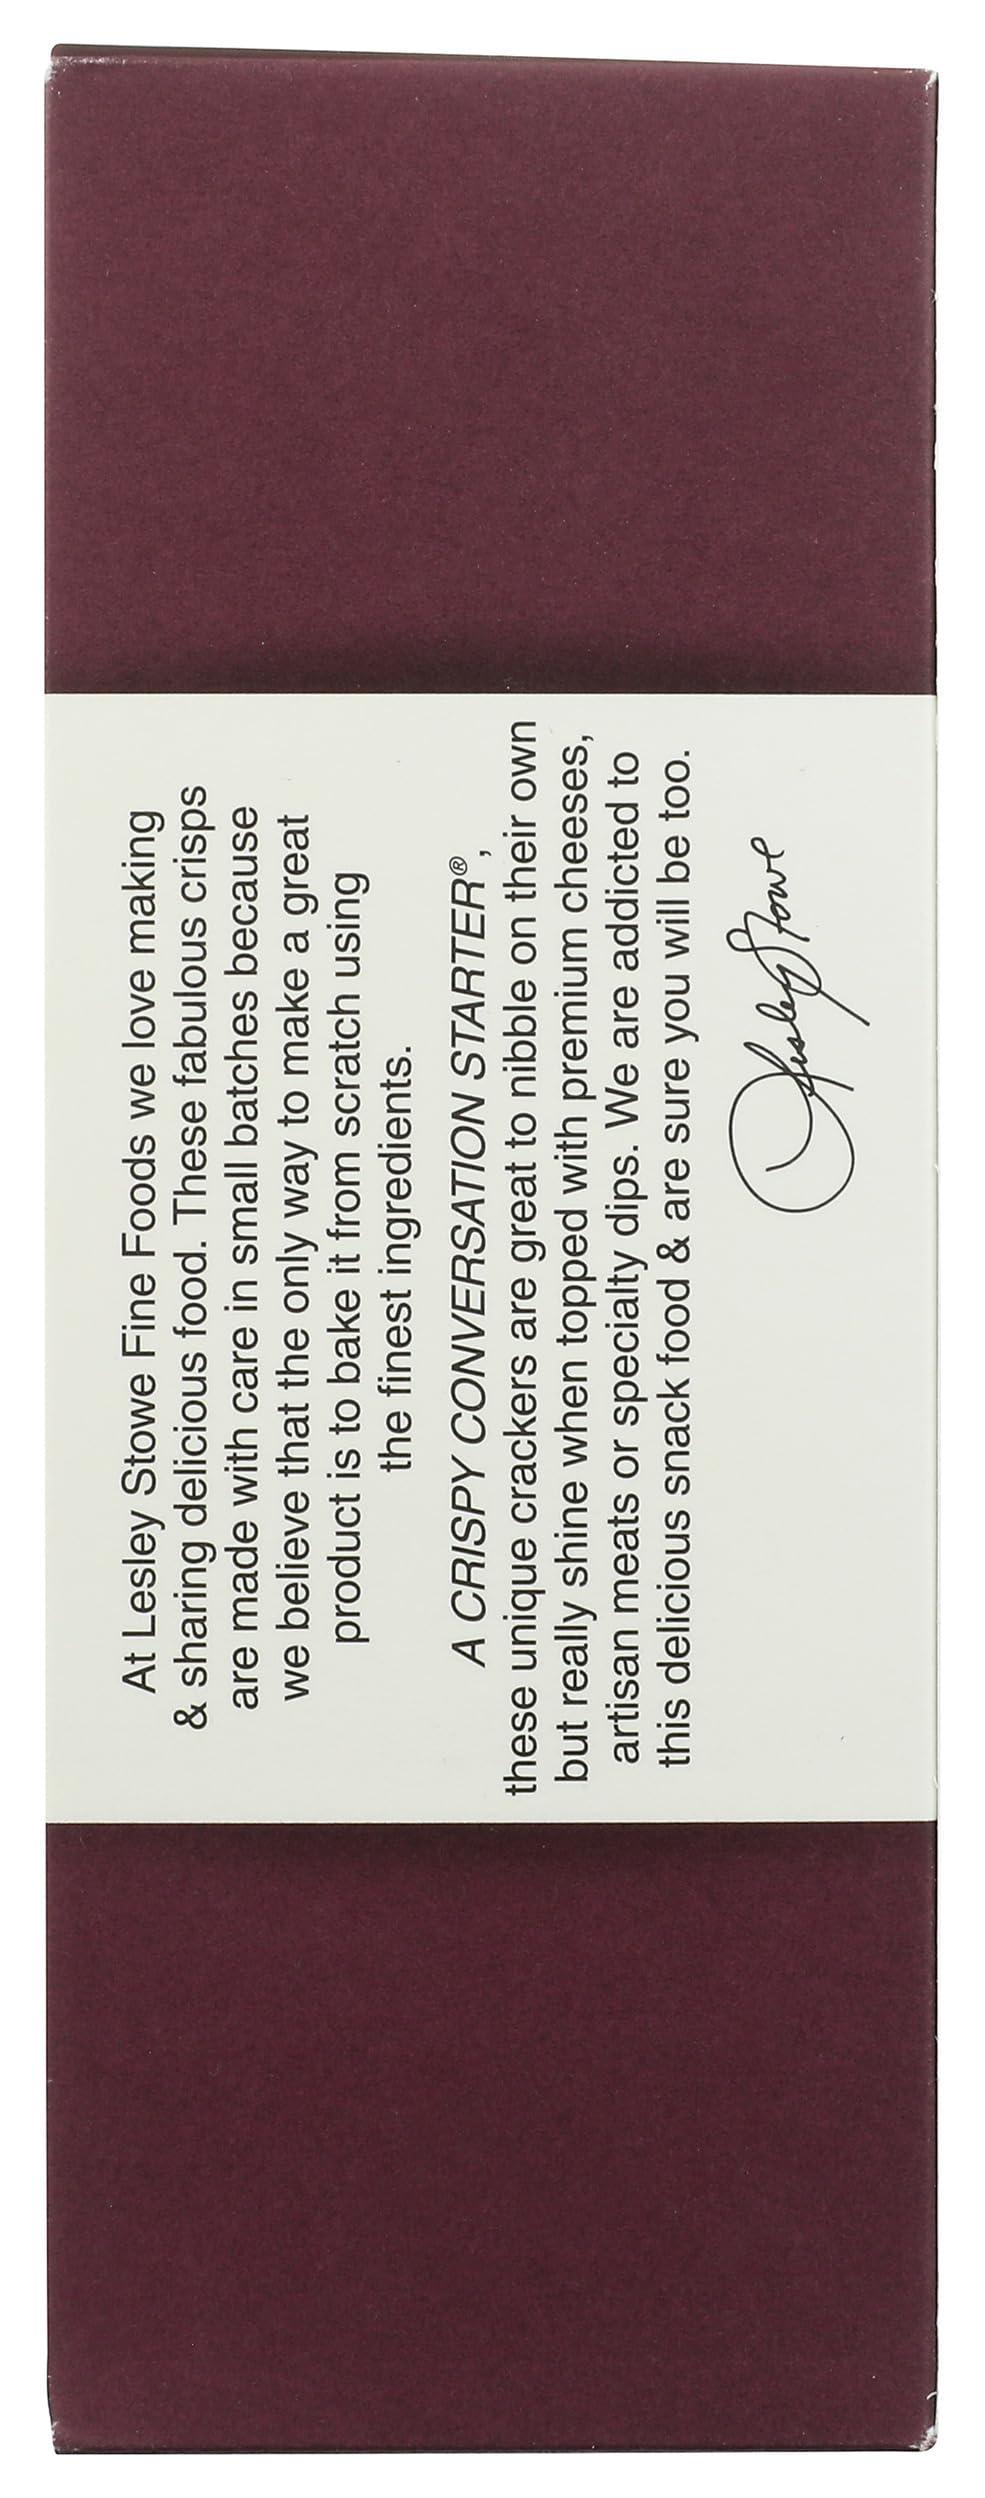 At Lesley Stowe Fine Foods we love making
& sharing delicious food. These fabulous crisps
are made with care in small batches because
we believe that the only way to make a great
product is to bake it from scratch using
the finest ingredients.
A CRISPY CONVERSATION STARTER®,
these unique crackers are great to nibble on their own
but really shine when topped with premium cheeses,
artisan meats or specialty dips. We are addicted to
this delicious snack food & are sure you will be too.
Lesley Stowe